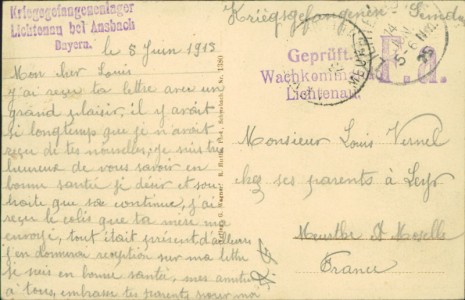 Kriegsgefangenenlager
Lichtenau bei Ansbach
Bayern.
Kriegsgefangenen Sendung
le 8 Juin 191
Mon cher Louis
j'ai reçu ta lettre avec un
grand plaisir, il y avait
si longtemps que je n'avait
reçu de tes nouvelles, je suis très
heureux de vous savoir en
bonne santé je désir et sou
haite que sa continue, j'ai
reçu le colis que ta mère ma
envoyé, tout était présent d'ailleurs
j'en donnerai reception sur ma lettre
je suis en bonne santé, mes amitiés
à tous, embrasse tes parents pour moi
Geprüft.
Wachkommando
Lichtenau.
Monsieur Louis Vernel
chez ses parents à Leyr
Meurthe & Moselle
France